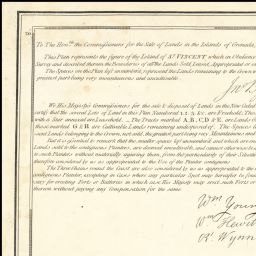 To The Hon^ble the Commissioners for the Sale of Lands in the Islands of Grenada,
This Plan represents the figure of the Island of S^t VINCENT which in Obedience
Survey and described therein the Boundaries of all the Lands Sold, Leased, Appropriated or
The Spaces on this Plan by unnumbered, represent the Lands remaining to the Crown
greatest part being very mountainous and uncultivable
We His Majesty's Commissioners for the sale & disposal of Lands in the New Ceded
certify that the several Lots of Land in this Plan Numbered 1. 2. 3. &c. are Freehold. Those
with a Star annexed are Leasehold. The Tracts marked A, B, C, D & E are Lands
those marked G & H are Cultivable Lands remaining undisposed of. The Spaces
and Lands belonging to the Crown, not sold, the greatest part very Mountainous and
But it is granted to remark that the smaller spaces by unnumbered and which are
Lands sold to the contiguous Planter, are deemed uncultivable, and cannot otherwise be
to such Planter without materially injuring them, from the particularity of their Situation
therefore considered by us as appropriated to the Use of the contiguous Planter.
The Three Chains round the Coast are also considered by us as appropriated to the
contiguous Planter, excepting in Cases where any particular Spot may hereafter be found
sary for erecting Forts or Batteries in which case His Majesty may erect such Forts or
thereon without paying any Compensation for the same
W^m Young
W^m Hewitt
R^t Wynn